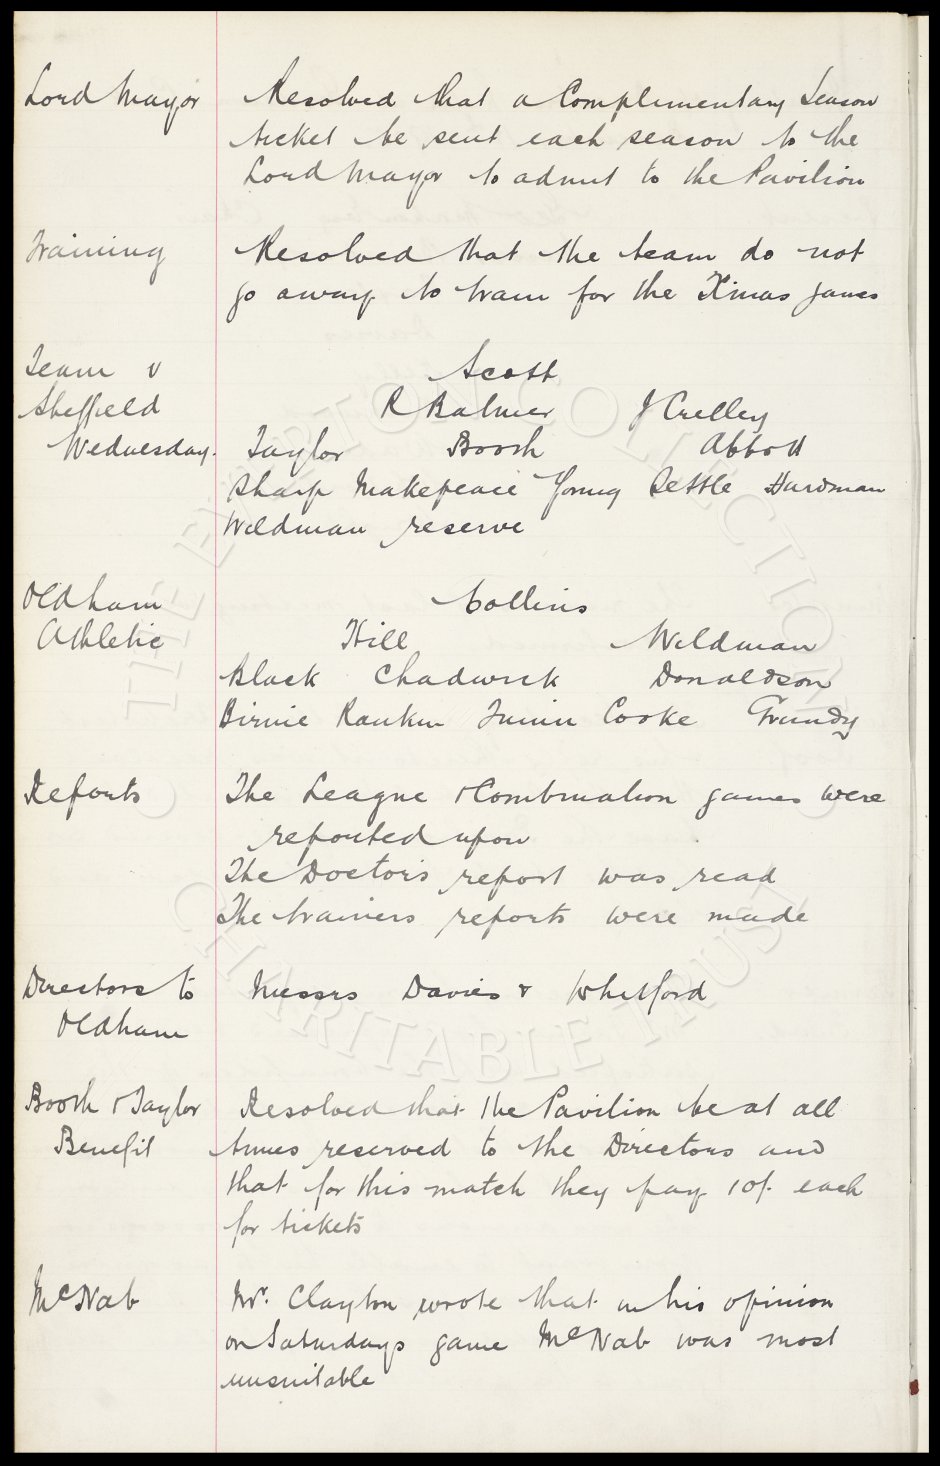 Lord Mayor Resolved that a Complimentary Season
ticket be sent each season to the
Lord Mayor to admit to the Pavilion
Training Resolved that the team do not
go away to train for the Xmas games
Team v Scott
Sheffield R Balmer J Crelley
Wednesday. Taylor Booth Abbott
Sharp Makepeace Young Settle Hardman
Wildman reserve
Oldham Collins
Athletic Hill Wildman
Black Chadwick Donaldson
Birnie Rankin Cooke Grundy
Reports The League & Combination games were
reported upon
The Doctors report was read
The trainers reports were made
Directors to Messrs Davies & Whitford
Oldham
Booth & Taylor Resolved that the Pavilion be at all
Benefit times reserved to the Directors and
that for this match they pay 10/- each
for tickets
McNab Mr. Clayton wrote that in his opinion
on Saturdays game McNab was most
unsuitable
THE EVERTON COLLECTION
CHARITABLE TRUST